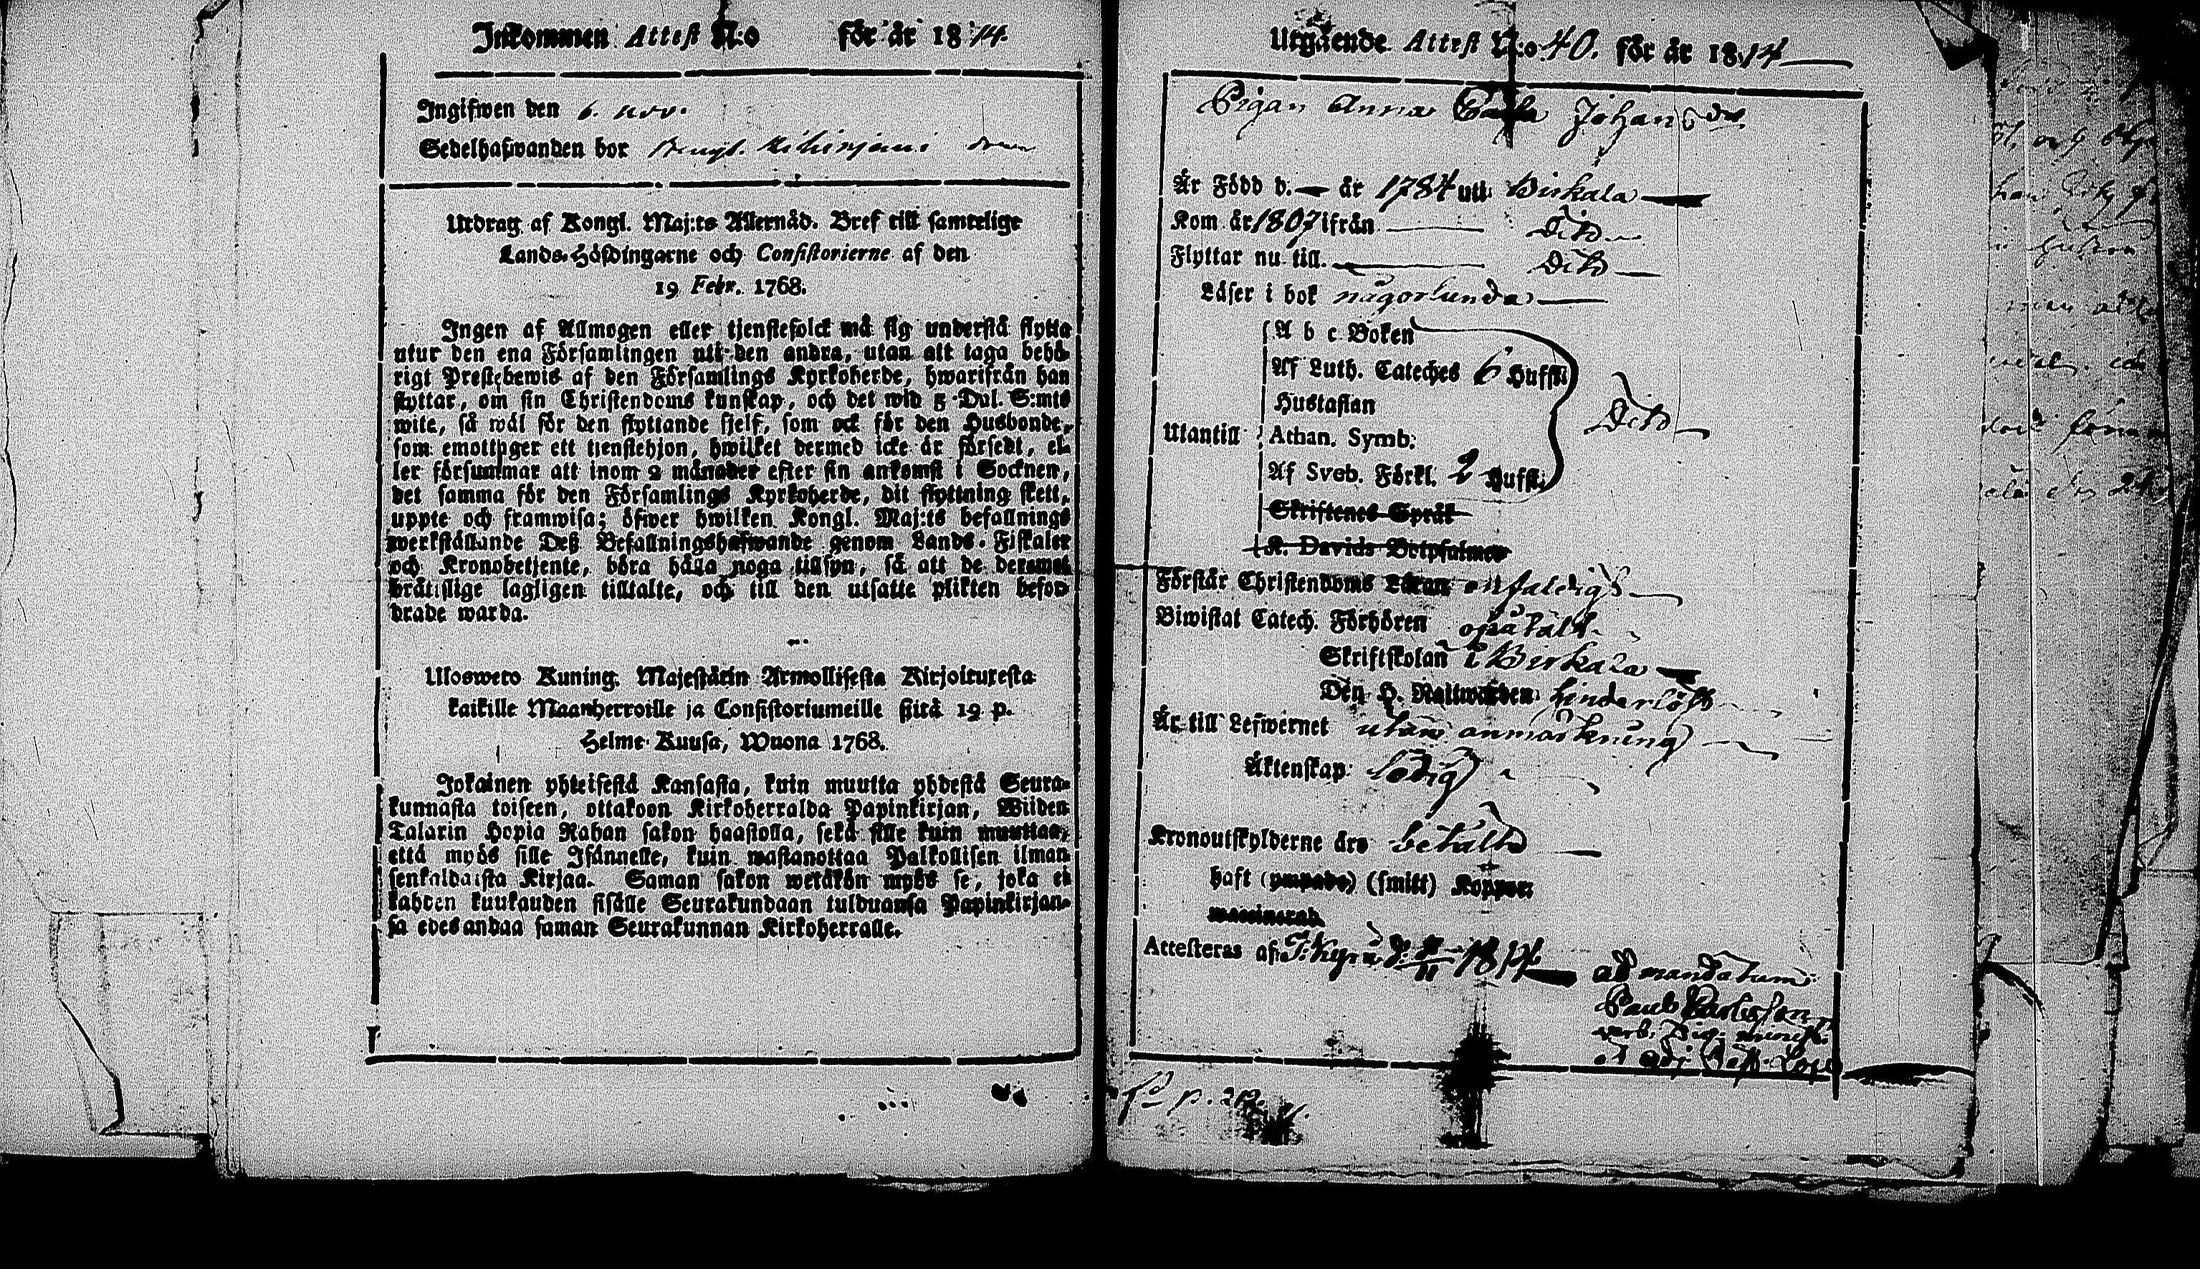 Inkommen Attest N:o för år 1814.
Ingifwen den 6. nov.
Sedelhafwanden bor
Utdrag af Kongl. Maj:ts Allernåd. Bref till samtelige
Lands-Höfdingarne och Consistorierne af den
19 Febr. 1768.
Ingen af Allmogen eller tjenstefolck må sig understå flytta
utur den ena Församlingen uti den andra, utan att taga behö-
rigt Prestebewis af den Församlings Kyrkoherde, hwarifrån han
flyttar, om sin Christendoms kunskap, och det wid 5 Dal. S:mts
wite, så wäl för den flyttande sjelf, som ock för den Husbonde,
som emottager ett tjenstehjon, hwilket dermed icke är försedt, el-
ler försummar att inom 2 månader efter sin ankomst i Socknen,
det samma för den Församlings Kyrkoherde, dit flyttning skett,
uppte och framwisa; öfwer hwilken Kongl. Maj:ts befallnings
werkställande Deß Befallningshafwande genom Lands-Fiskaler
och Kronobetjente, böra hålla noga tillsyn, så att de deremot
brätslige lagligen tilltalte, och till den utsatte plikten befor-
drade warda.
Ulosweto Kuning. Majestätin Armollisesta Kirjoituresta
kaikille Maanherroille ja Consistoriumeille siitä 19 p.
Helme-Kuusa, Wuona 1768.
Jokainen yhteisestä Kansasta, kuin muutta yhdestä Seura-
kunnasta toiseen, ottakoon Kirkoherralda Papinkirjan, Wiiden
Talarin Hopia Rahan sakon haastolla, sekä sille kuin muuttaa,
että myös sille Isännelle, kuin wastanottaa Palkollisen ilman
senkaldaista Kirjaa. Saman sakon wetäkön myös se, joka ei
kahden kuukauden sisälle Seurakundaan tulduansa Papinkirjan-
sa edesandaa saman Seurakunnan Kirkoherralle.
Utgående Attest N:o 40. för år 1814
Pigan Anna Johansdr
Är Född d. år 1784 uti Birkala
Kom år 1807 ifrån Dito
Flyttar nu till Dito
Läser i bok någorlunda
A b c Boken
Af Luth. Cateches 6 Hufst.
Hustaflan
Utantill Athan. Symb: Dito
Af Sveb. Förkl. 2 Hufst.
Skriftenes Språk
K. Davids Botpsalmer
Förstår Christendoms Läran enfaldigt
Biwistat Catech. Förhören opåtalt
Skriftskolan i Birkala
Den H. Nattwarden hinderlöst
Är till Lefwernet utan anmärkning
Äktenskap: ledig
Kronoutskylderne äro betalte
haft (ympade) (smitt) Koppor:
waccinerad
Attesteras af T:Kyro d. 1814
ad mandatum
Paul
p. 212.